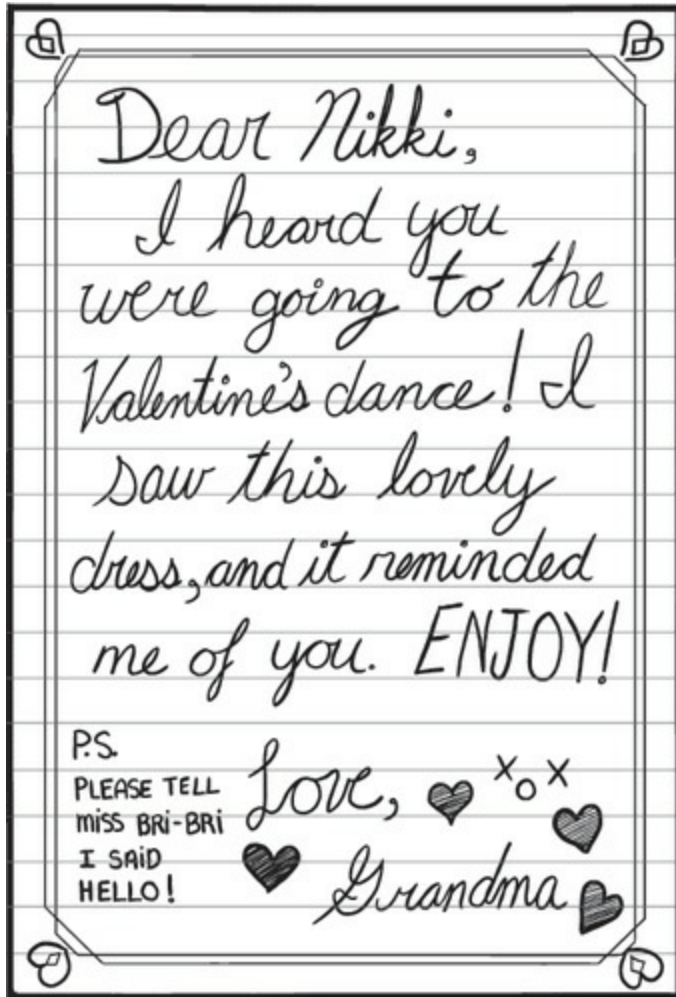 Dear Nikki,
I heard you
were going to the
Valentine's dance! I
saw this lovely
dress, and it reminded
me of you. ENJOY!
P.S.
PLEASE TELL
miss BRi-BRi
I SAiD
HELLO!
Love,
XOX
Grandma